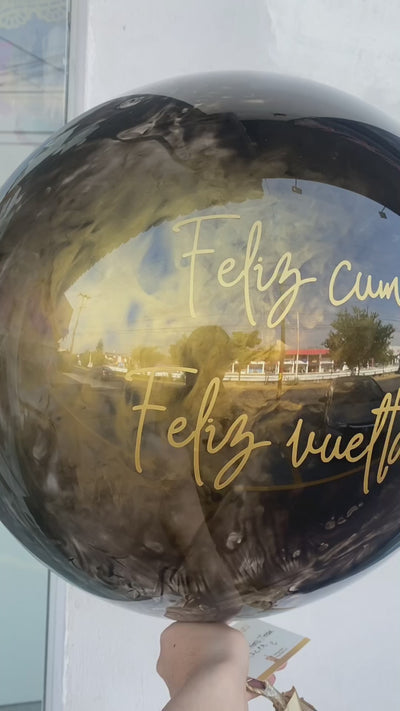 Feliz cum
Feliz vuelt